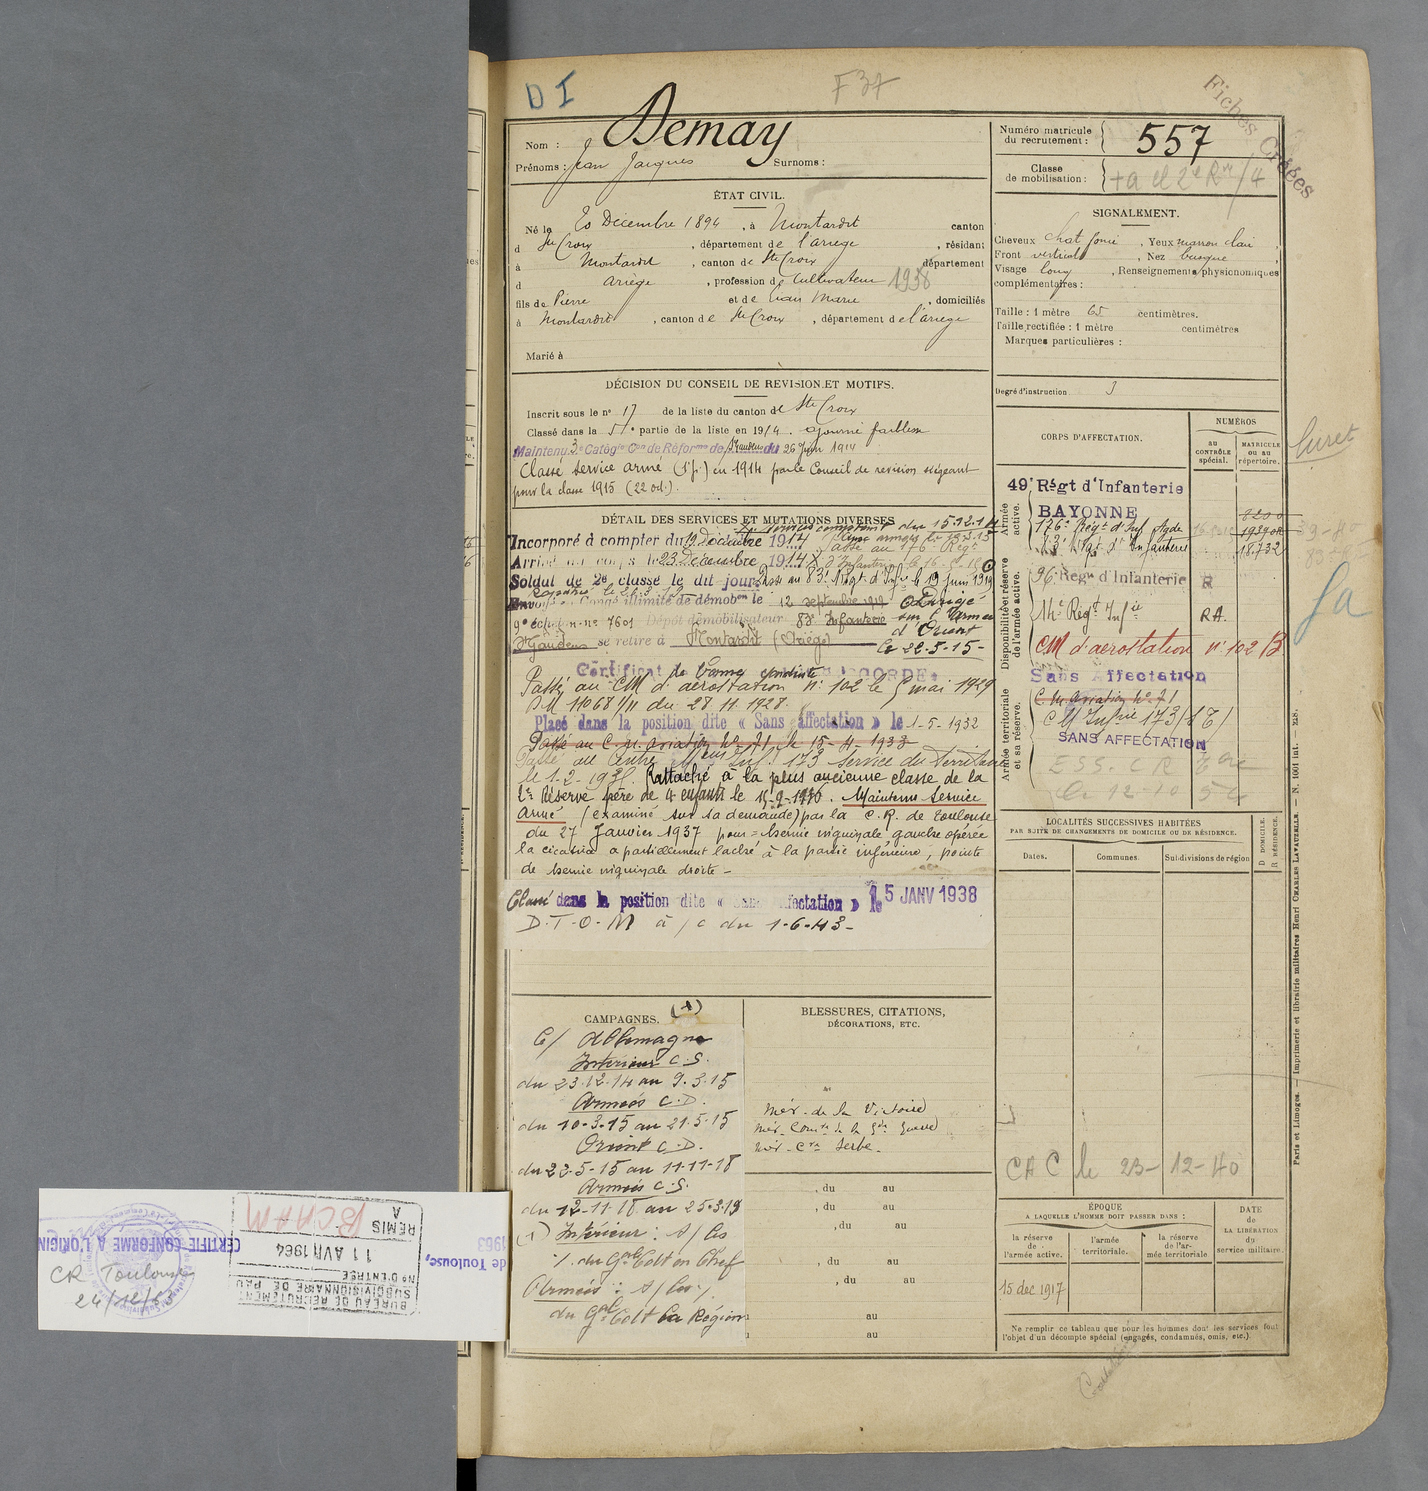 D I
F 37
Fiches Créées
Nom : Demay
Prénoms : Jean Jacques Surnoms :
Numéro matricule du recrutement : 557
Classe de mobilisation :
ÉTAT CIVIL.
Né le 20 Décembre 1894, à Montardit canton
d Ste Croix, département de l'ariege, résidant
à Montardit, canton de Ste Croix département
d ariège, profession de Cultivateur 1938
fils de Pierre et de Jean Marie, domiciliés
à Montardit, canton de Ste Croix, département de l'ariege
Marié à
SIGNALEMENT.
Cheveux chat foncé, Yeux marron clair,
Front vertical, Nez busqué,
Visage long, Renseignements physionomiques
complémentaires :
Taille : 1 mètre 65 centimètres.
Taille rectifiée : 1 mètre centimètres
Marques particulières :
Degré d'instruction 3
DÉCISION DU CONSEIL DE REVISION ET MOTIFS.
Inscrit sous le n° 17 de la liste du canton de Ste Croix
Classé dans la 5e partie de la liste en 1914. ajourné faiblesse
Maintenu 3e Catégie Con de Réforme de St Gaudens du 26 Juin 1914
Classé service armé (1e p.) en 1914 par le Conseil de revision siégeant
pour la classe 1915 (22 oct.).
DÉTAIL DES SERVICES ET MUTATIONS DIVERSES
du 15.12.14
Incorporé à compter du 19 Décembre 1914
Arrivé au corps le 23 Décembre 1914
Passé au 176e Régt
d'Infanterie le 16-5-15
Soldat de 2e classe le dit jour. Passé au 83e Régt d'Infie le 19 Juin 1919
Envoyé en Congé illimité de démobon le 12 septembre 1919
Dirigé sur l'Armée d'Orient
le 22-5-15-
9e échelon n° 7601 Dépôt démobilisateur 83e Infanterie
St Gaudens se retire à Montardit (Ariège)
Certificat de Bonne conduite ACCORDÉ.
Passé au CM d'aérostation n° 102 le 5 mai 1929
DM 11068 1/11 du 28.11.1928.
Placé dans la position dite « Sans affectation » le 1-5-1932
Passé au C. M. aviation N° 71 le 15-4-1933
Passé au Centre Mon Inf. 173 Service du Territoire
le 1.2-193 . Rattaché à la plus ancienne classe de la
2e Réserve père de 4 enfants le 15-9-1936. Maintenu service
armé (examiné sur sa demande) par la C. R. de Toulouse
du 27 Janvier 1937 pour = hernie inguinale gauche opérée
la cicatrice a partiellement lâché à la partie inférieure, pointe
de hernie inguinale droite -
Classé dans la position dite « Sans affectation » le 15 JANV 1938
D.T.O.M à/c du 1-6-43-
CORPS D'AFFECTATION.
NUMÉROS
au CONTRÔLE spécial.
MATRICULE ou au répertoire.
Armée active.
49e Régt d'Infanterie
BAYONNE
176e Régt d'Inf
83e Régt d'Infanterie 18.732
Disponibilité et réserve de l'armée active.
96e Régt d'Infanterie R
14e Régt Infie RA.
CM d'aérostation n° 102 B
Armée territoriale et sa réserve.
Sans Affectation
C. M. Aviation N° 71
CM Infrie 173 (8T)
SANS AFFECTATION
LOCALITÉS SUCCESSIVES HABITÉES
PAR SUITE DE CHANGEMENTS DE DOMICILE OU DE RÉSIDENCE.
D DOMICILE. R RÉSIDENCE.
Dates. Communes. Subdivisions de région
CAC le 23-12-40
CAMPAGNES. (1)
C/ Allemagne
Intérieur C.S.
du 23.12.14 au 9.3.15
Armées C.D.
du 10-3-15 au 21.5.15
Orient C.D.
du 22-5-15 au 11-11-18
Armées C.S.
du 12-11-18 au 25-3-19
(1) Intérieur : S/ Ces
/. du Gral Cdt en Chef
Armées : S/ Ces /.
du Gal Cdt la Région
BLESSURES, CITATIONS,
DÉCORATIONS, ETC.
Mér. de la Victoire
Mér. Comve de la Gde Guerre
Mér. Cve Serbe.
, du au
, du au
, du au
, du au
, du au
au
au
ÉPOQUE
A LAQUELLE L'HOMME DOIT PASSER DANS :
la réserve de l'armée active.
l'armée territoriale.
la réserve de l'armée territoriale
DATE de LA LIBÉRATION du service militaire.
15 dec 1917
Ne remplir ce tableau que pour les hommes dont les services font
l'objet d'un décompte spécial (engagés, condamnés, omis, etc.).
Paris et Limoges. — Imprimerie et librairie militaires Henri CHARLES LAVAUZELLE. — N. 1001 int.
BUREAU DE RECRUTEMENT
SUBDIVISIONNAIRE DE PAU
N° D'ENTRÉE
11 AVR 1964
REMIS A
BCAAM
CERTIFIÉ CONFORME À L'ORIGIN
de Toulouse,
1963
CR Toulouse
24/12/63